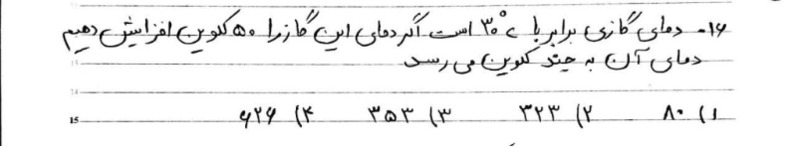 ۱۶- دمای گازی برابر با ۳۰°c است اگر دمای این گاز را ۵۰ کلوین افزایش دهیم
دمای آن به چند کلوین می رسد
۱) ۸۰ ۲) ۳۲۳ ۳) ۳۵۳ ۴) ۶۲۶
15